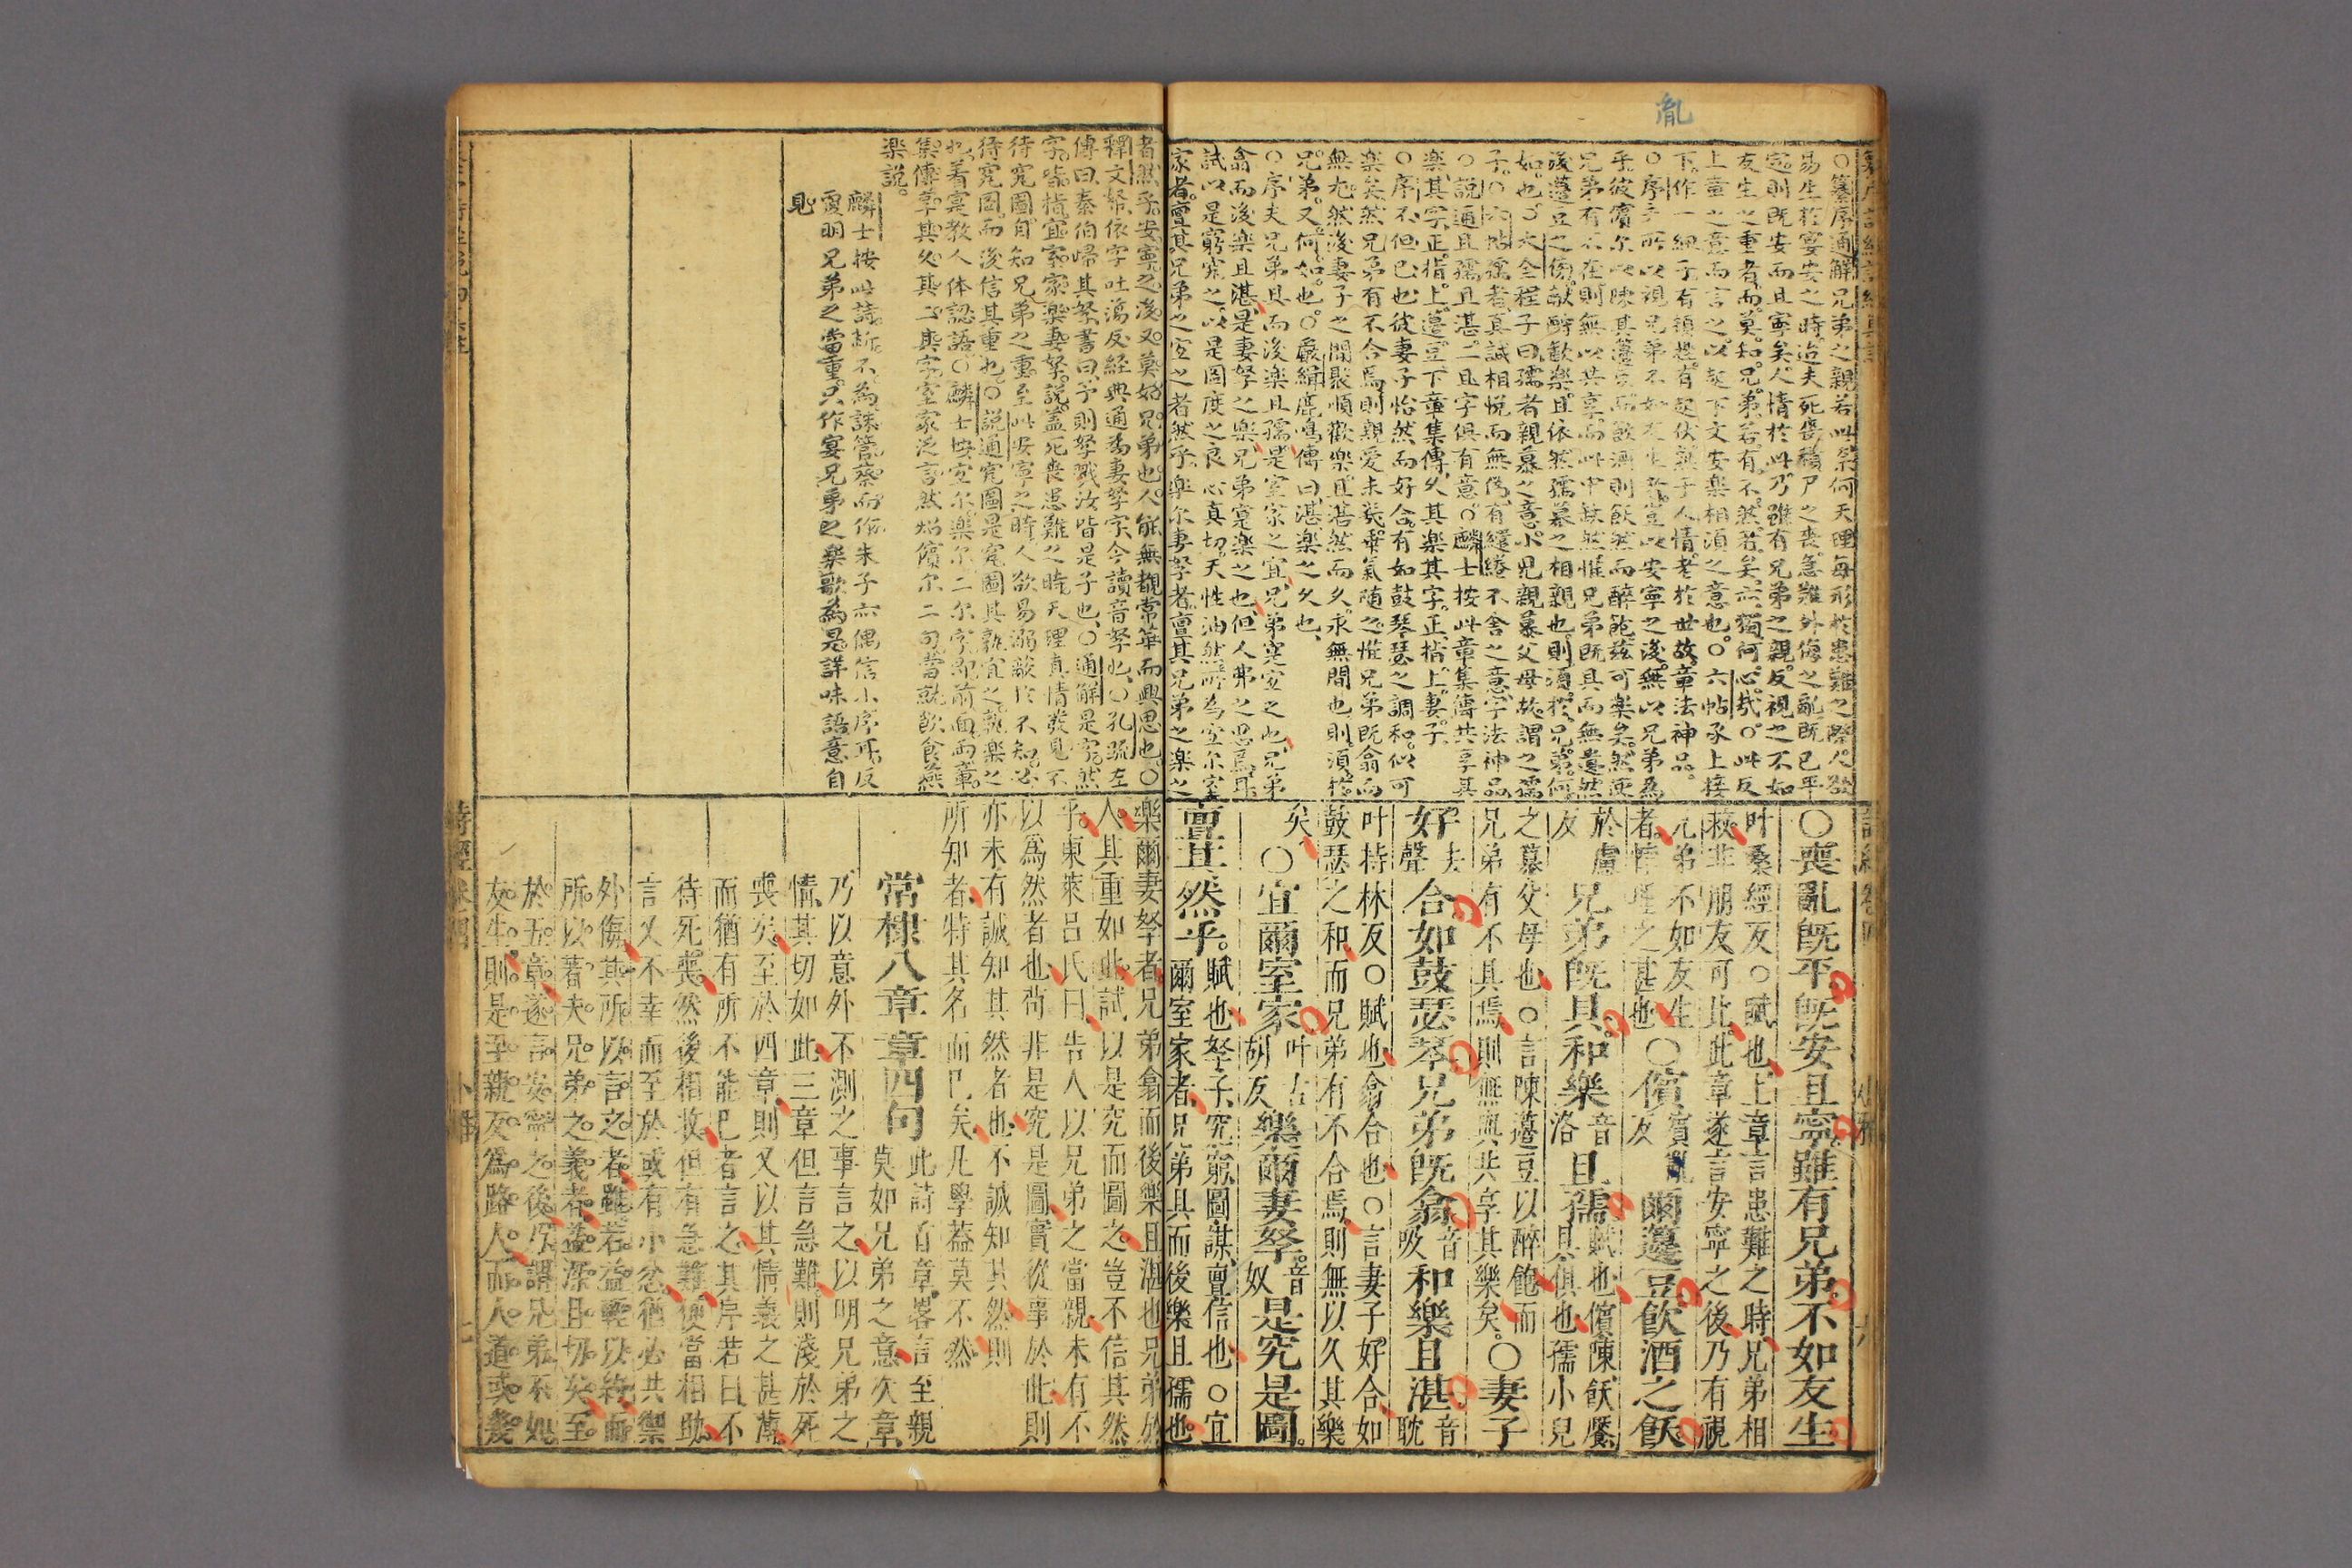 胤
○纂序通解兄弟之親若此奈何天理每形於患難之際人欲
易生於宴安之時迨夫死喪積尸之喪急難外侮之亂既已平
定則既安而且寧矣人情於此乃雖有兄弟之親反視之不如
友生之重者而莫知兄弟若有不然若矣亦獨何心哉○此反
上章之意而言之以起下文安樂相須之意也○六帖承上接
下作一紐子有頓挫有起伏熟于人情老於世故章法神品
○序于所以視兄弟不如友生者豈以安寧之後無以兄弟為
乎彼儐尔以陳其籩豆而飲酒則飫然而醉飽茲可樂矣然使
兄弟有不在則無以共享而此中缺然惟兄弟既具而無遺然
後籩豆之儐獻酬歡樂且依然孺慕之相親也則須於兄弟何
如也○大全程子曰孺者親慕之意小兒親慕父母故謂之孺
子○六帖孺者真誠相悅而無偽有繾綣不舍之意字法神品
○說通且孺且湛二且字俱有意○麟士按此章集傳共享其
樂其字正指上籩豆下章集傳久其樂其字正指上妻子
○序不但已也彼妻子怡然而好合有如鼓琴瑟之調和似可
樂矣然兄弟有不合焉則親愛未幾乖氣隨之惟兄弟既翕而
無尤然後妻子之間聚順歡樂且湛然而久永無間也則須於
兄弟又何如也○嚴緝鹿鳴傳曰湛樂之久也
○序夫兄弟具而後樂且孺是室家之宜兄弟實宜之也兄弟
翕而後樂且湛是妻孥之樂兄弟實樂之也但人弗之思焉耳
試以是窮究之以是圖度之良心真切天性油然所為宜尔室
家者亶其兄弟之宜之者然乎樂尔妻孥者亶其兄弟之樂之
○喪亂既平既安且寧雖有兄弟不如友生
叶桑經反○賦也上章言患難之時兄弟相
救非朋友可比此章遂言安寧之後乃有視
兄弟不如友生者悖理之甚也○儐賓胤反爾籩豆飲酒之飫
於慮反兄弟既具和樂音洛且孺賦也儐陳飫饜具俱也孺小兒
之慕父母也○言陳籩豆以醉飽而
兄弟有不具焉則無與共享其樂矣○妻子
好去聲合如鼓瑟琴兄弟既翕音吸和樂且湛音耽
叶持林反○賦也翕合也○言妻子好合如
鼓瑟之和而兄弟有不合焉則無以久其樂
矣○宜爾室家叶古胡反樂爾妻孥音奴是究是圖
亶其然乎賦也孥子究窮圖謀亶信也○宜
爾室家者兄弟具而後樂且孺也
者然乎安寧之後又莫如兄弟也人能無覩常華而興思也○
釋文帑依字吐蕩反經典通為妻孥字今讀音孥也○孔疏左
傳曰秦伯歸其孥書曰予則孥戮汝皆是子也○通解是究然
字皆指宜家家樂妻孥說蓋死喪患難之時天理真情發見不
待究圖自知兄弟之重至此安寧之時人欲易溺蔽於不知必
待究圖而後信其重也○說通究圖是究圖其孰宜之孰樂之
也着實教人体認語○麟士按宜尔樂尔二尔字即前面兩章
集傳享其久其二其字室家泛言然如儐尔二句當就飲食燕
樂說
麟士按此詩斷不為誅管蔡而作朱子亦偶信小序耳反
覆明兄弟之當重只作宴兄弟之樂歌為是詳味語意自
見
樂爾妻孥者兄弟翕而後樂且湛也兄弟於
人其重如此試以是究而圖之豈不信其然
乎東萊呂氏曰告人以兄弟之當親未有不
以為然者也苟非是究是圖實從事於此則
亦未有誠知其然者也不誠知其然則
所知者特其名而已矣凡學蓋莫不然
常棣八章章四句此詩首章畧言至親
莫如兄弟之意次章
乃以意外不測之事言之以明兄弟之
情其切如此三章但言急難則淺於死
喪矣至於四章則又以其情義之甚薄
而猶有所不能已者言之其序若曰不
待死喪然後相收但有急難便當相助
言又不幸而至於或有小忿猶必共禦
外侮其所以言之者雖若益輕以約而
所以著夫兄弟之義者益深且切矣至
於五章遂言安寧之後乃謂兄弟不如
友生則是至親反為路人而人道或幾
詩經卷四
小雅
七